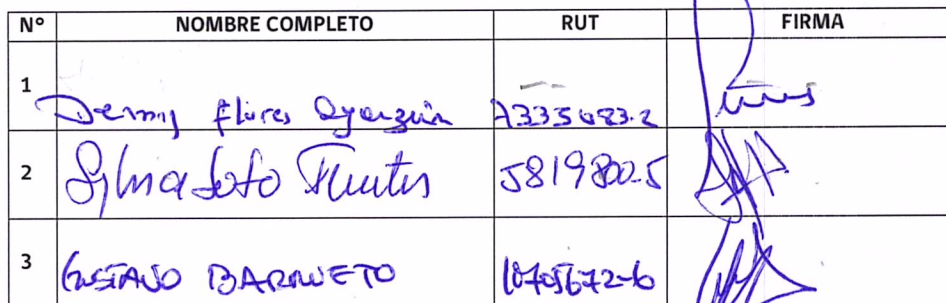 N° NOMBRE COMPLETO RUT FIRMA
1 Dennis Flores Oyarzún
2 Sylvia Soto Fuentes 5819800-5
3 GUSTAVO BARRUETO 10705672-6